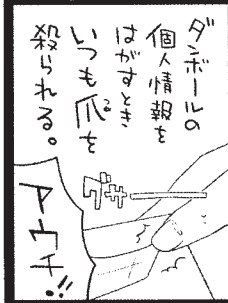 ダンボールの
個人情報を
はがすとき
いつも爪を
殺られる。
グサ
アウチ!!